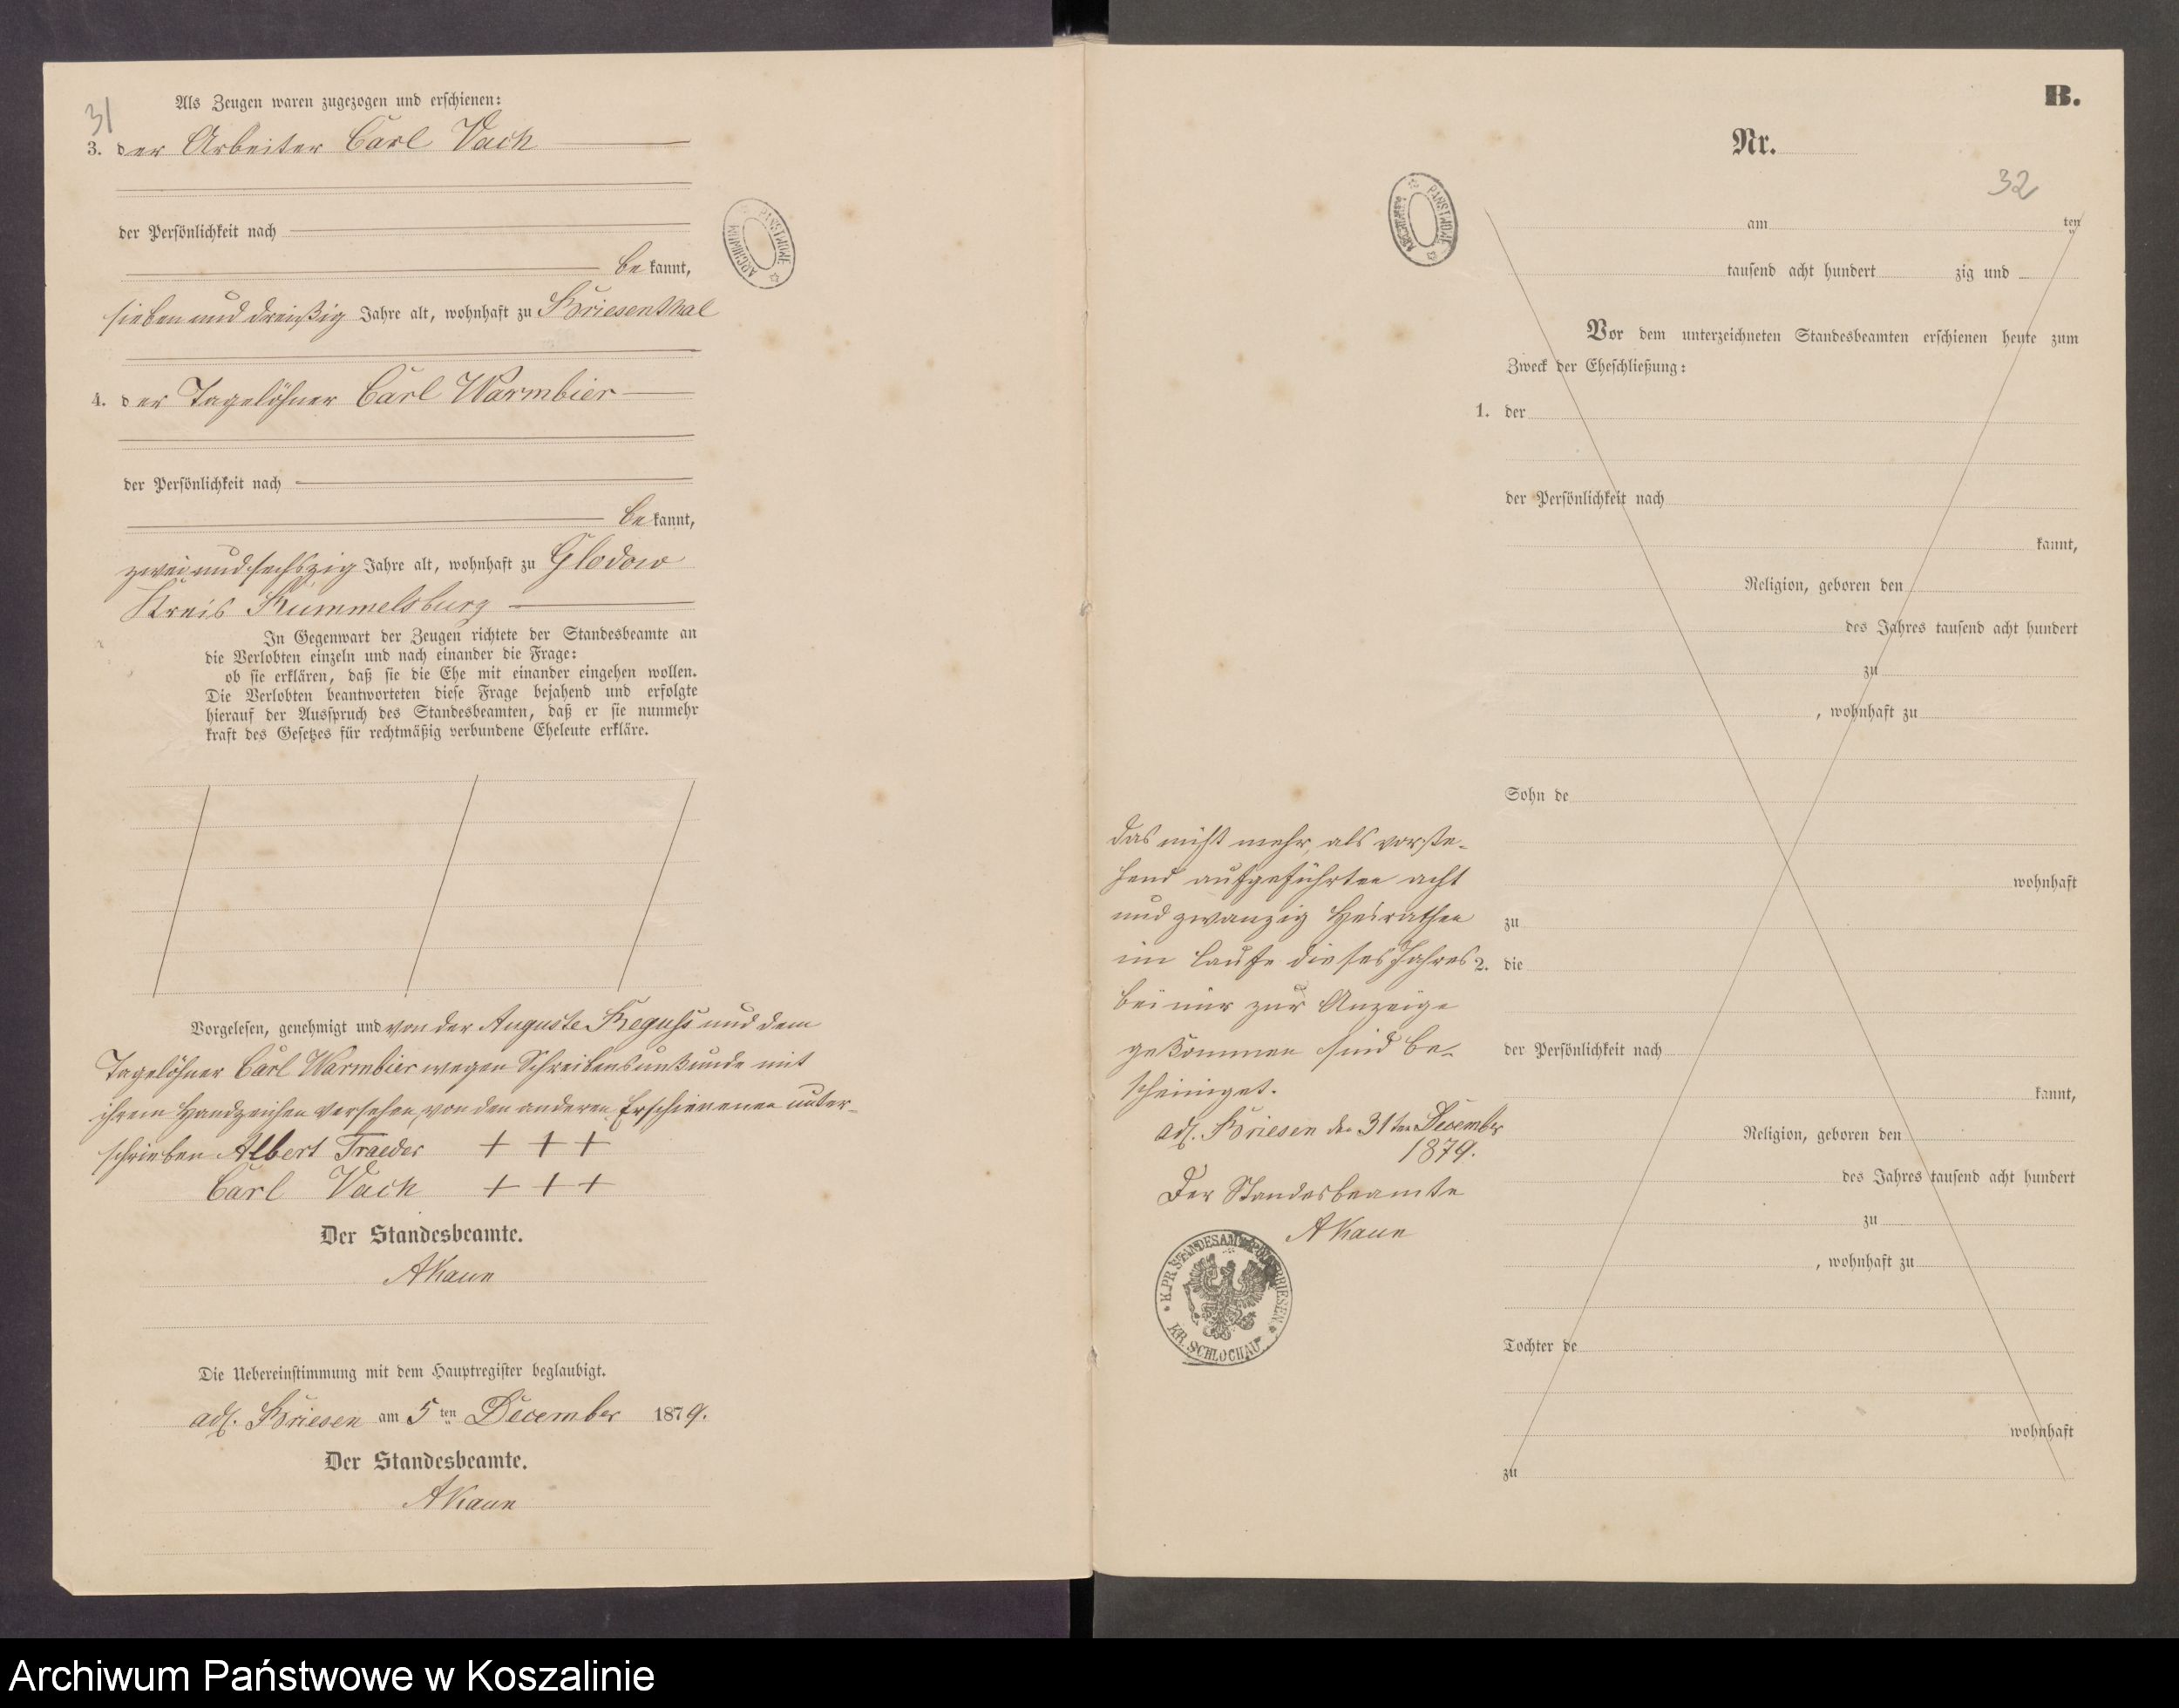 31
Als Zeugen waren zugezogen und erschienen:
3. der Arbeiter Carl Vach
der Persönlichkeit nach
be kannt,
sieben und dreißig Jahre alt, wohnhaft zu Briesenthal
4. der Tagelöhner Carl Warmbier
der Persönlichkeit nach
be kannt,
zwei und sechszig Jahre alt, wohnhaft zu Glodow
Kreis Rummelsburg
In Gegenwart der Zeugen richtete der Standesbeamte an
die Verlobten einzeln und nach einander die Frage:
ob sie erklären, daß sie die Ehe mit einander eingehen wollen.
Die Verlobten beantworteten diese Frage bejahend und erfolgte
hierauf der Ausspruch des Standesbeamten, daß er sie nunmehr
kraft des Gesetzes für rechtmäßig verbundene Eheleute erkläre.
Vorgelesen, genehmigt und von der Auguste und dem
Tagelöhner Carl Warmbier wegen Schreibensunkunde mit
ihrem Handzeichen versehen, von den anderen Erschienenen unter-
schrieben Albert Traeder + + +
Carl Vach + + +
Der Standesbeamte.
AKaun
Die Uebereinstimmung mit dem Hauptregister beglaubigt.
adl. Briesen am 5 ten December 1879.
Der Standesbeamte.
AKaun
ARCHIWUM PAŃSTWOWE
das nicht mehr, als vorste-
hend aufgeführten acht
und zwanzig Heirathen
im Laufe dieses Jahres
bei mir zur Anzeige
gekommen sind be-
scheiniget.
adl. Briesen den 31ten December
1879.
Der Standesbeamte
AKaun
K. PR. STANDESAMT BRIESEN
KR. SCHLOCHAU
ARCHIWUM PAŃSTWOWE
B.
Nr.
32
am ten
tausend acht hundert zig und
Vor dem unterzeichneten Standesbeamten erschienen heute zum
Zweck der Eheschließung:
1. der
der Persönlichkeit nach
kannt,
Religion, geboren den
des Jahres tausend acht hundert
zu
, wohnhaft zu
Sohn de
wohnhaft
zu
2. die
der Persönlichkeit nach
kannt,
Religion, geboren den
des Jahres tausend acht hundert
zu
, wohnhaft zu
Tochter de
wohnhaft
zu
Archiwum Państwowe w Koszalinie